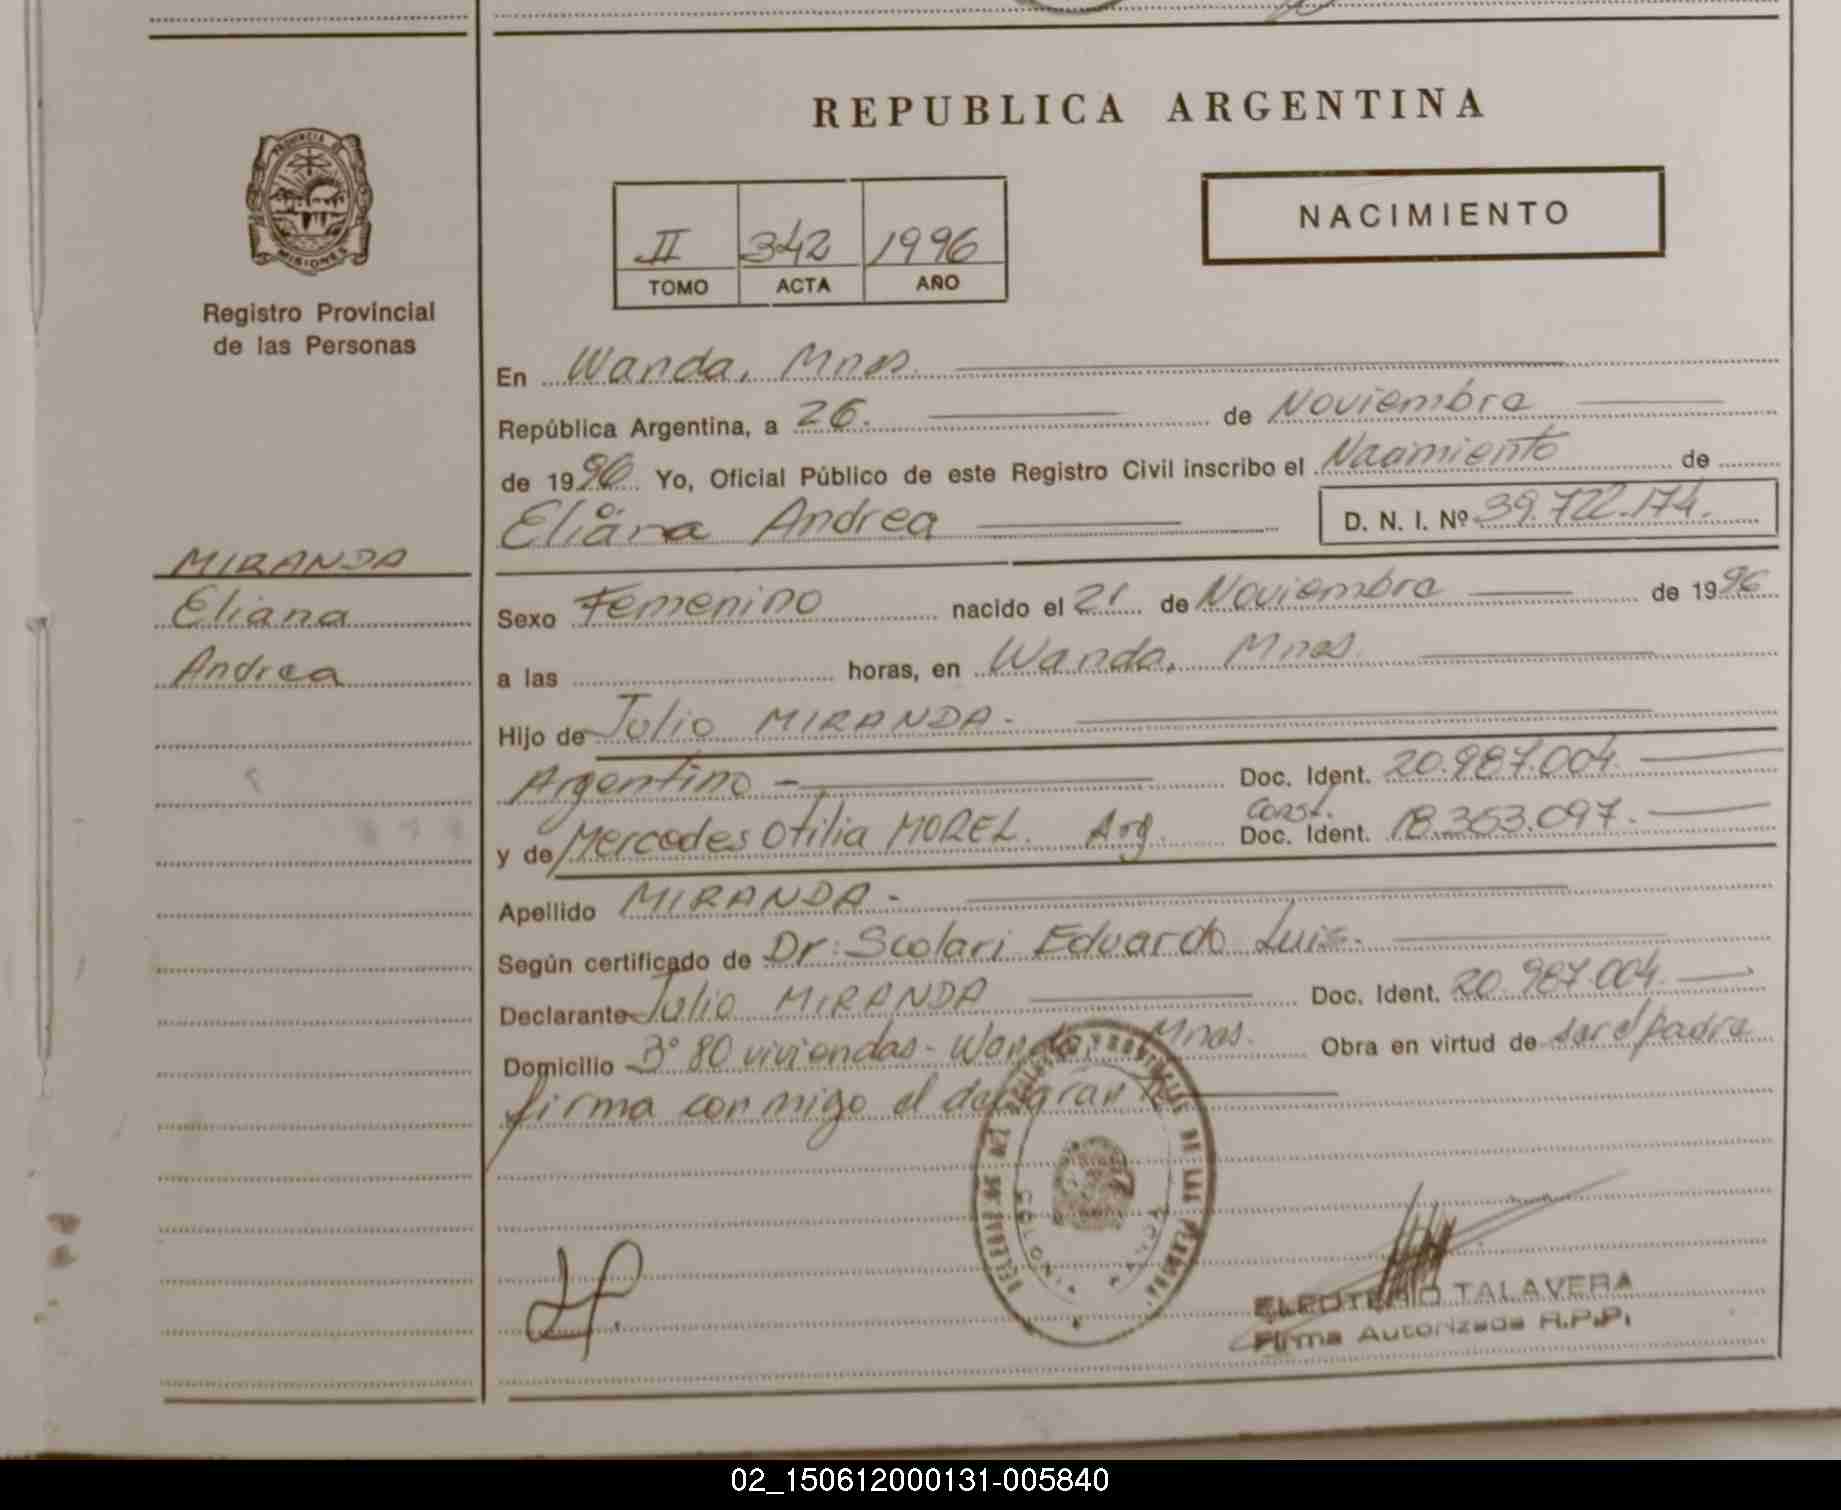 REPUBLICA ARGENTINA
PROVINCIA DE
MISIONES
Registro Provincial
de las Personas
NACIMIENTO
II 342 1996
TOMO ACTA AÑO
En Wanda, Mnes.
República Argentina, a 26. de Noviembre
de 1996 Yo, Oficial Público de este Registro Civil inscribo el Nacimiento de
Eliana Andrea D. N. I. Nº 39.722.174.
MIRANDA
Eliana
Andrea
Sexo Femenino nacido el 21 de Noviembre de 1996
a las horas, en Wanda, Mnes.
Hijo de Julio MIRANDA.
Argentino - Doc. Ident. 20.987.004.
const.
y de Mercedes Otilia MOREL. Arg. Doc. Ident. 18.363.097.
Apellido MIRANDA -
Según certificado de Dr: Scolari Eduardo Luis.
Declarante Julio MIRANDA Doc. Ident. 20.987.004.
Domicilio Bº 80 viviendas - Wanda, Mnes. Obra en virtud de ser el padre
firma con migo el declarante
COLONIA WANDA
ELEUTERIO TALAVERA
Firma Autorizada R.P.P.
02_150612000131-005840